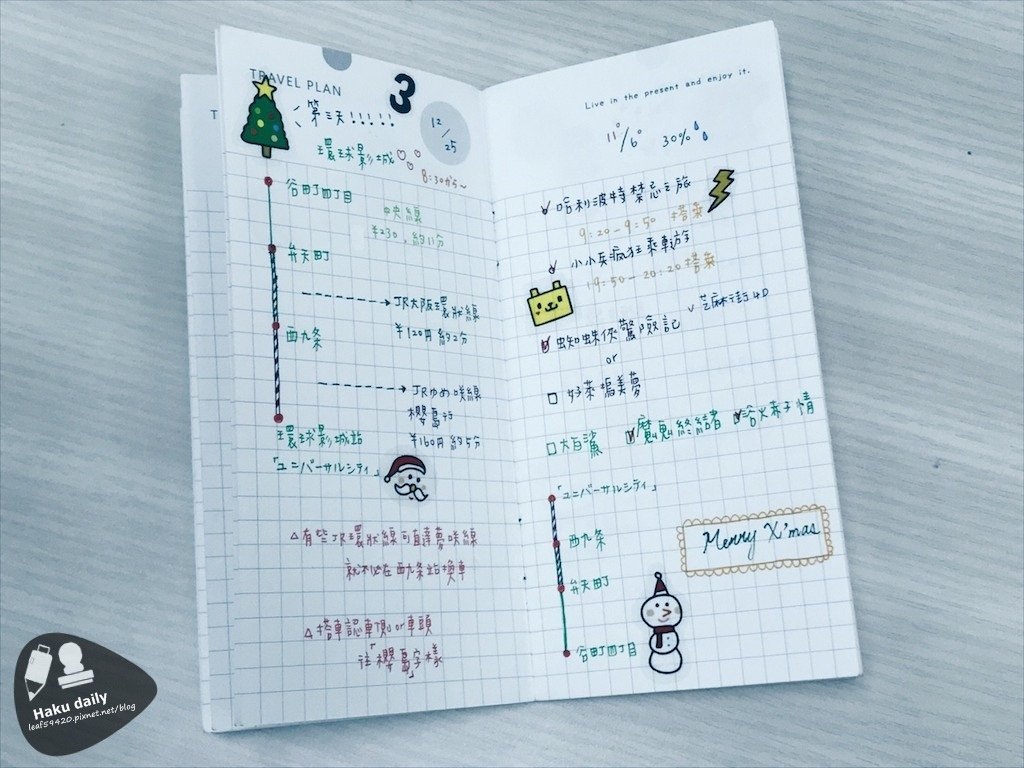 TRAVEL PLAN
3
第三天!!!!!
12/25
環球影城♡♡♡
8:30から~
谷町四丁目
中央線
¥230、約11分
弁天町
JR大阪環狀線
¥120円 約2分
西九条
JRゆめ咲線
櫻島行
¥160円 約5分
環球影城站
「ユニバーサルシティ」
△有些JR環狀線可直達夢咲線
就不必在西九条站換車
△搭車認車側or車頭
往「櫻島」字樣
Live in the present and enjoy it.
11°/6° 30%
哈利波特禁忌之旅
9:20-9:50 搭乘
小小兵瘋狂乘車遊
19:50-20:20搭乘
芝麻街4D
蜘蛛俠驚險記
or
好萊塢美夢
大白鯊
魔鬼終結者
浴火赤子情
「ユニバーサルシティ」
西九条
弁天町
谷町四丁目
Merry X'mas
Haku daily
leaf59420.pixnet.net/blog